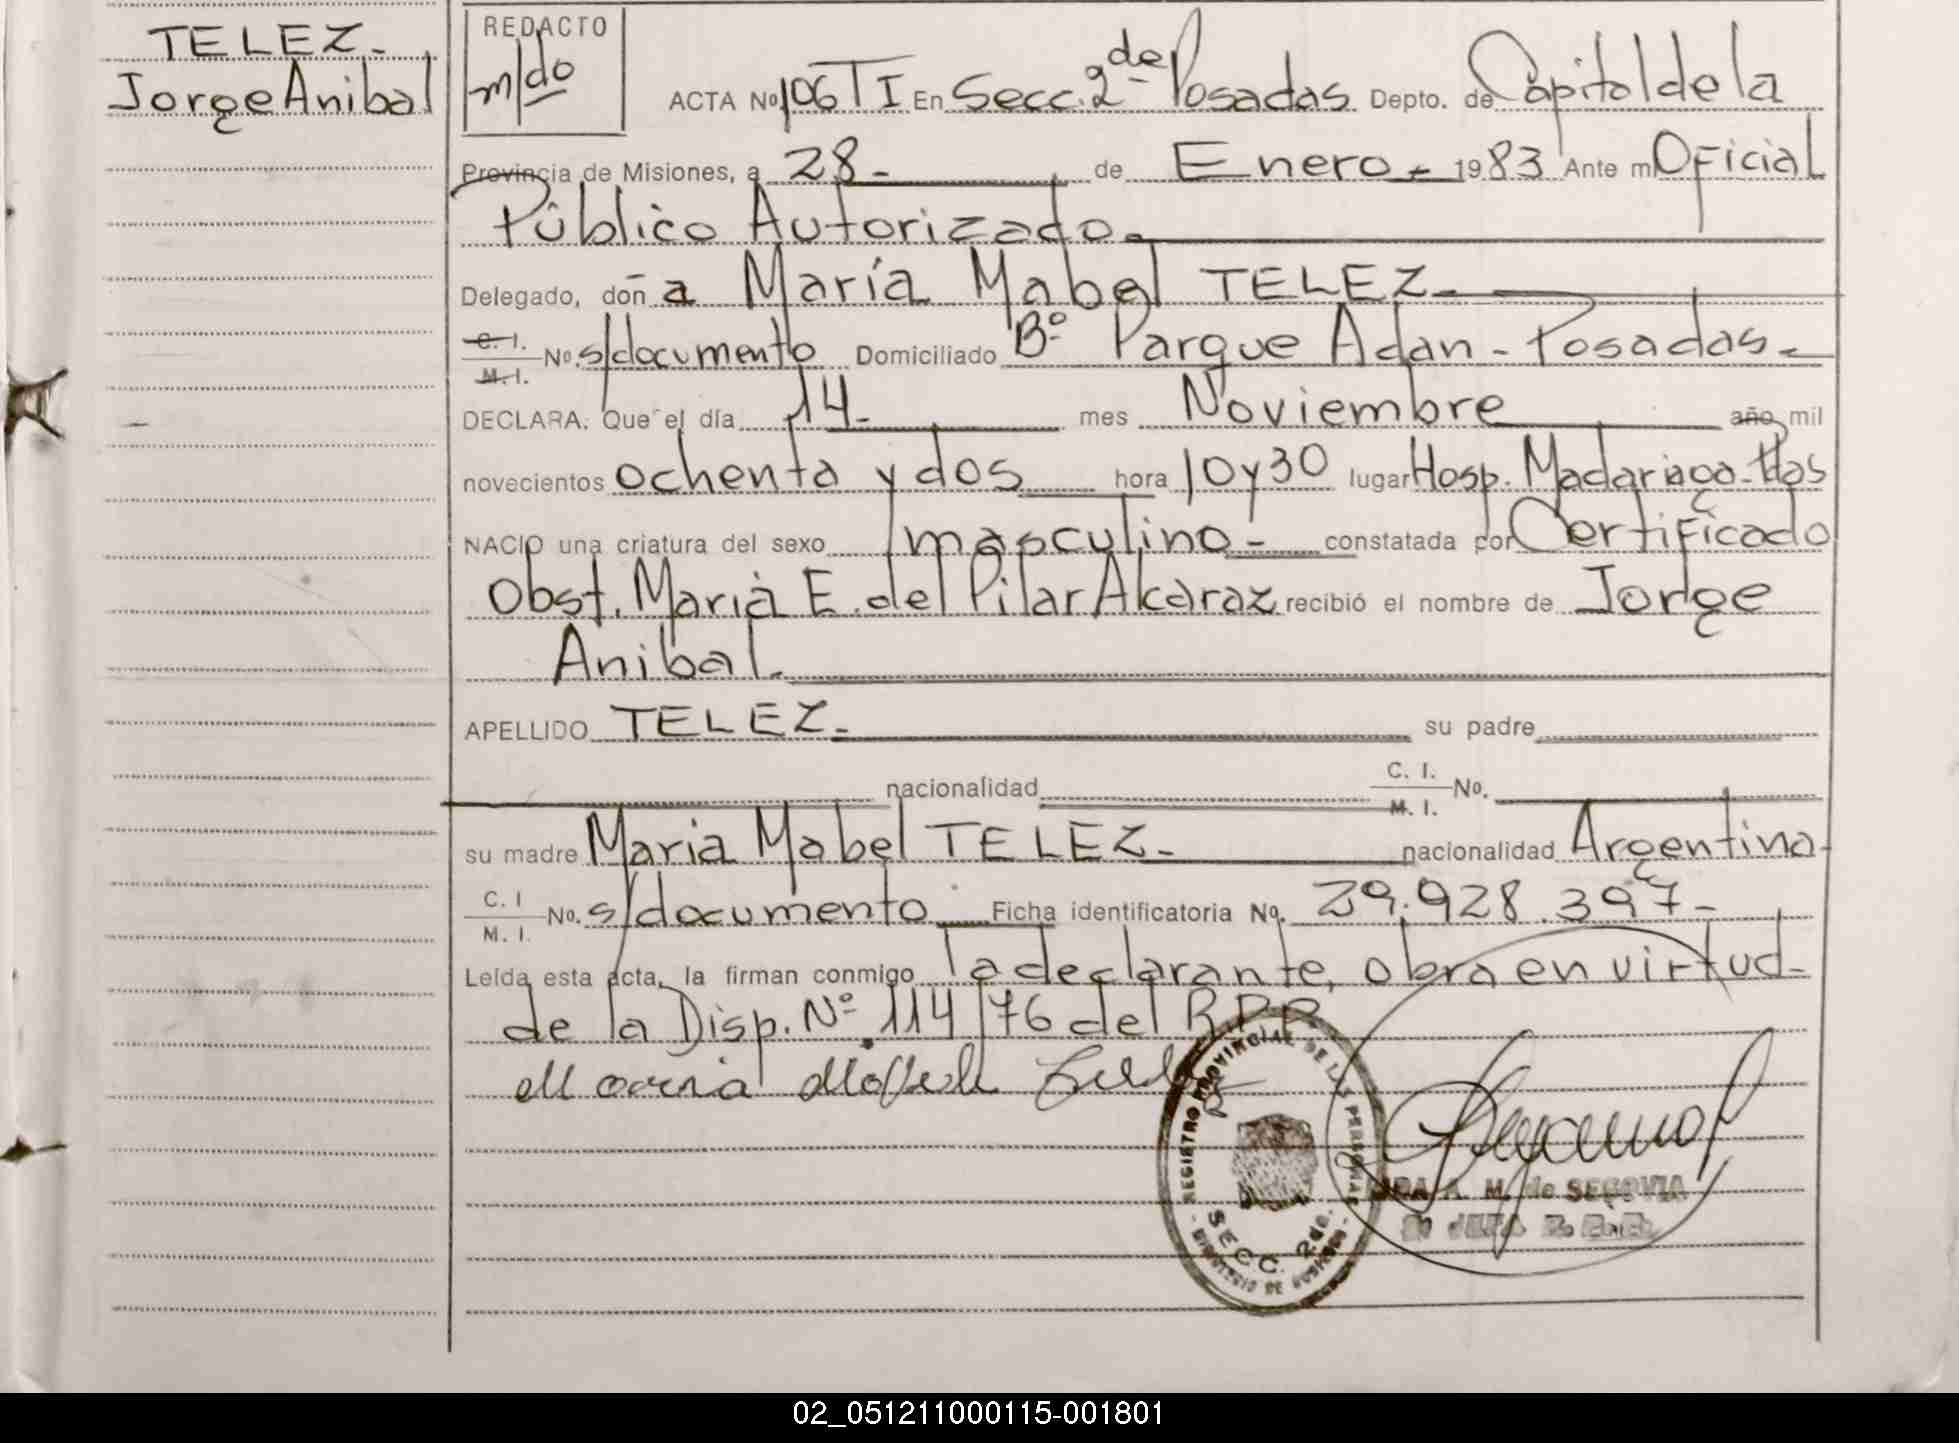 TELEZ-
Jorge Anibal
REDACTO
m/do
ACTA No. 106 TI En Secc. 2de Posadas Depto. de Capital de la
Provincia de Misiones, a 28- de Enero- 1983 Ante mi Oficial
Público Autorizado.
Delegado, doña María Mabel TELEZ-
C. I.
M. I. No. s/documento Domiciliado Bº Parque Adan - Posadas-
DECLARA: Que el día 14- mes Noviembre año mil
novecientos ochenta y dos hora 10 y 30 lugar Hosp. Madariaga-
NACIO una criatura del sexo masculino- constatada por Certificado
Obst. María E. del Pilar Alcaraz recibió el nombre de Jorge
Anibal.
APELLIDO TELEZ- su padre
nacionalidad C. I. M. I. No.
su madre Maria Mabel TELEZ- nacionalidad Argentina-
C. I M. I. No. s/documento Ficha identificatoria No. 29.928.397-
Leída esta acta, la firman conmigo la declarante, obra en virtud
de la Disp. Nº 114/76 del R.P.P.
Maria Mabel
REGISTRO PROVINCIAL DE LAS PERSONAS
SECC. 2da.
A. M. de SEGOVIA
02_051211000115-001801